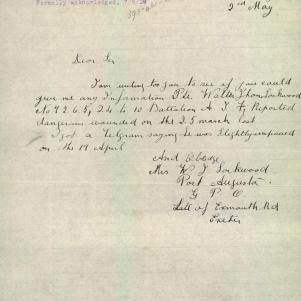 Formally acknowledged, 7/5/18
2nd May
Dear Sir
I am writing to you to see if you could
give me any Information Pte. Walter Thom Lockwood
No 7265, 24 & 10 Battalion A I F, Reported
dangerous wounded on the 25 march last
I got a Telegram saying he was Slightly improved
on the 17 April
And Oblidge
Mrs W J Lockwood
Port Augusta
G P O
Late of Exmouth Rd
Exeter